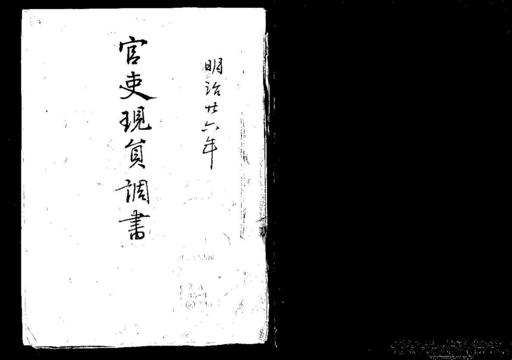 明治廿六年
官吏現員調書